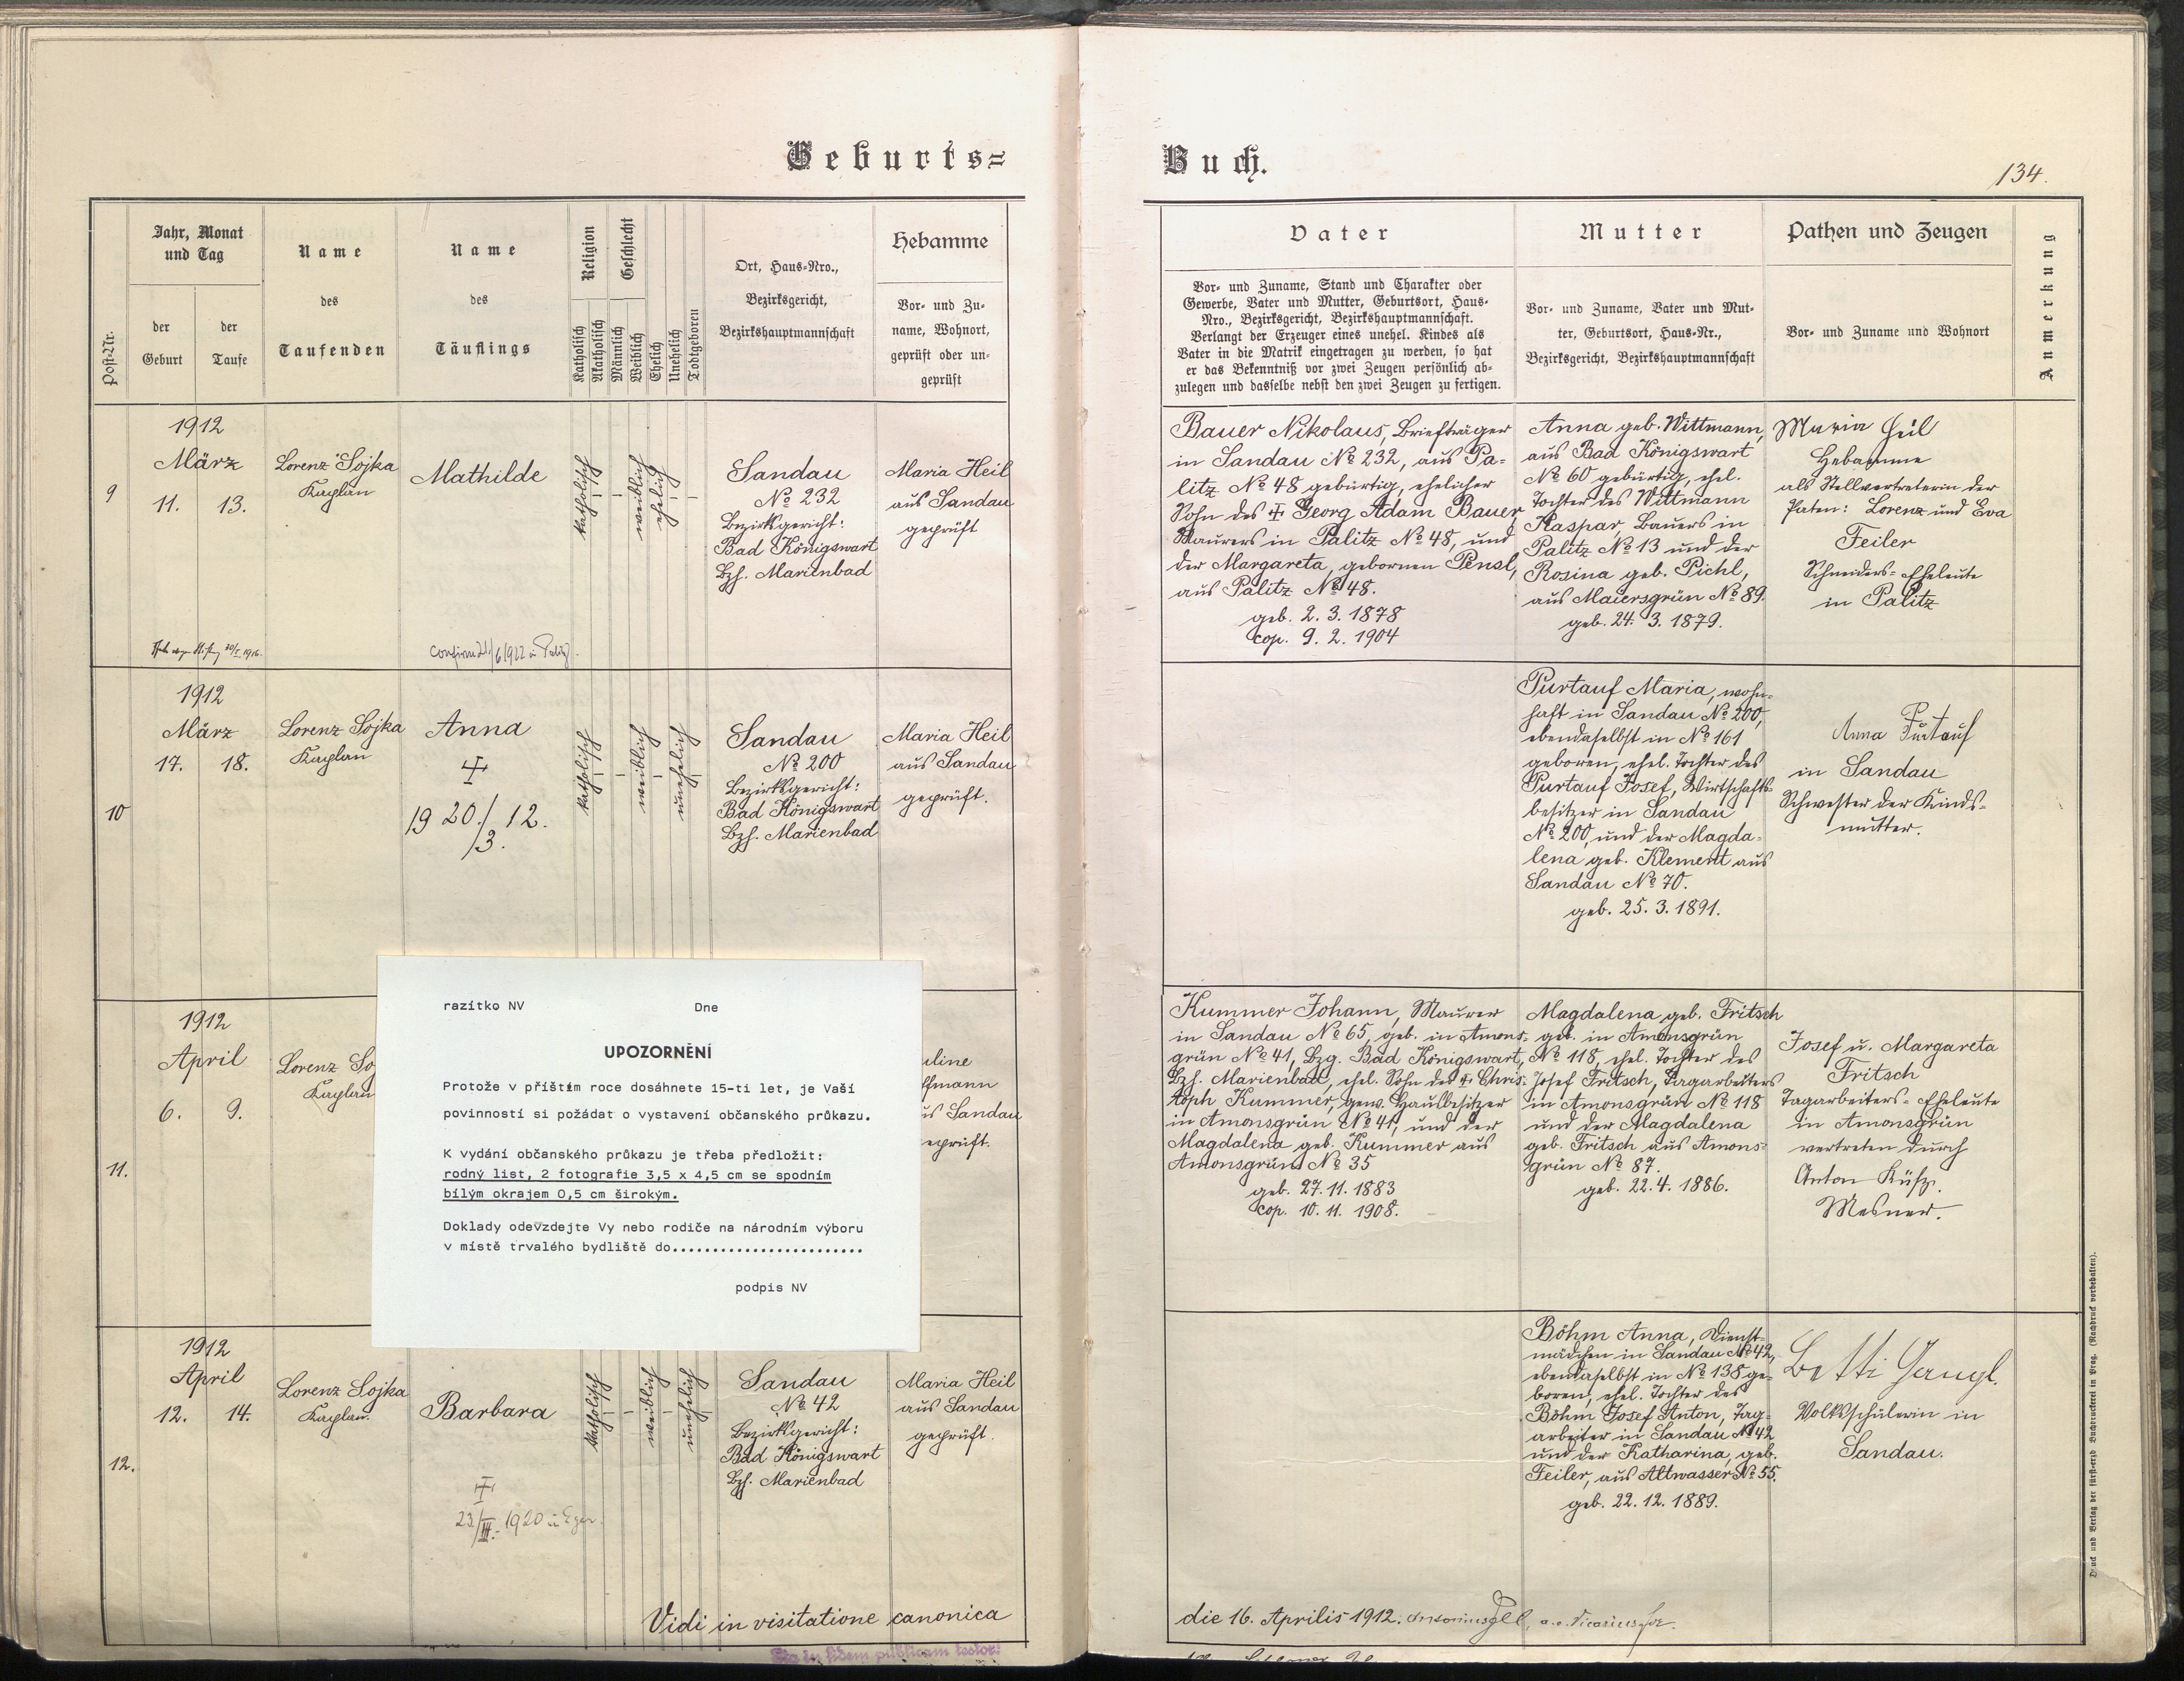 Geburts=
Post-Nr.
Jahr, Monat
und Tag
der
Geburt
der
Taufe
Name
des
Taufenden
Name
des
Täuflings
Religion
Katholisch
Akatholisch
Geschlecht
Männlich
Weiblich
Ehelich
Unehelich
Todtgeboren
Ort, Haus-Nro.,
Bezirksgericht,
Bezirkshauptmannschaft
Hebamme
Vor- und Zu-
name, Wohnort,
geprüft oder un-
geprüft
9
1912
März
11. 13.
Lorenz Sojka
Kaplan
Mathilde
confirm 21/6 1922 in
katholisch
weiblich
ehelich
Sandau
No 232
Bezirksgericht:
Bad Königswart
Bzh. Marienbad
Maria Heil
aus Sandau
geprüft
10
1912
März
17. 18.
Lorenz Sojka
Kaplan
Anna
+
19 20./3. 12.
katholisch
weiblich
unehelich
Sandau
No 200
Bezirksgericht:
Bad Königswart
Bzh. Marienbad
Maria Heil
aus Sandau
geprüft.
11.
1912
April
6. 9.
Lorenz So
Kaplan
uline
ffmann
us Sandau
eprüft.
razítko NV Dne
UPOZORNĚNÍ
Protože v příštím roce dosáhnete 15-ti let, je Vaší
povinností si požádat o vystavení občanského průkazu.
K vydání občanského průkazu je třeba předložit:
rodný list, 2 fotografie 3,5 x 4,5 cm se spodním
bílým okrajem 0,5 cm širokým.
Doklady odevzdejte Vy nebo rodiče na národním výboru
v místě trvalého bydliště do........................
podpis NV
12.
1912
April
12. 14.
Lorenz Sojka
Kaplan.
Barbara
+
23/III. 1920 in Eger.
katholisch
weiblich
unehelich
Sandau
No 42
Bezirksgericht:
Bad Königswart
Bzh. Marienbad
Maria Heil
aus Sandau
geprüft.
Vidi in visitatione canonica
Buch.
134.
Vater
Vor- und Zuname, Stand und Charakter oder
Gewerbe, Vater und Mutter, Geburtsort, Haus-
Nro., Bezirksgericht, Bezirkshauptmannschaft.
Verlangt der Erzeuger eines unehel. Kindes als
Vater in die Matrik eingetragen zu werden, so hat
er das Bekenntniß vor zwei Zeugen persönlich ab-
zulegen und dasselbe nebst den zwei Zeugen zu fertigen.
Mutter
Vor- und Zuname, Vater und Mut-
ter, Geburtsort, Haus-Nr.,
Bezirksgericht, Bezirkshauptmannschaft
Pathen und Zeugen
Vor- und Zuname und Wohnort
Anmerkung
Bauer Nikolaus, Briefträger
in Sandau No 232, aus Pa-
litz No 48 gebürtig, ehelicher
Sohn des + Georg Adam Bauer,
Maurers in Palitz No 48, und
der Margareta, gebornen Pensl,
aus Palitz No 48.
geb. 2. 3. 1878
cop. 9. 2. 1904
Anna geb. Wittmann,
aus Bad Königswart
No 60 gebürtig, ehel.
Tochter des Wittmann
Kaspar, Bauers in
Palitz No 13 und der
Rosina geb. Pichl,
aus Maiersgrün No 89.
geb. 24. 3. 1879.
Maria Heil
Hebamme
als Stellvertreterin der
Paten: Lorenz und Eva
Feiler
Schneiders-Eheleute
in Palitz
Purtauf Maria, wohn-
haft in Sandau No 200,
ebendaselbst in No 161
geboren, ehel. Tochter des
Purtauf Josef, Wirtschafts-
besitzer in Sandau
No 200, und der Magda-
lena geb. Klement aus
Sandau No 70.
geb. 25. 3. 1891.
Anna Purtauf
in Sandau
Schwester der Kinds-
mutter.
Kummer Johann, Maurer
in Sandau No 65, geb. in Amons-
grün No 41, Bzg. Bad Königswart,
Bzh. Marienbad, ehel. Sohn des + Chris-
toph Kummer, gew. Hausbesitzer
in Amonsgrün No 41, und der
Magdalena geb. Kummer aus
Amonsgrün No 35
geb. 27. 11. 1883
cop. 10. 11. 1908.
Magdalena geb. Fritsch
geb. in Amonsgrün
No 118, ehel. Tochter des
Josef Fritsch, Tagarbeiters
in Amonsgrün No 118
und der Magdalena
geb. Fritsch aus Amons-
grün No 87.
geb. 22. 4. 1886.
Josef u. Margareta
Fritsch
Tagarbeiters-Eheleute
in Amonsgrün
vertreten durch
Anton
Mesner.
Böhm Anna, Dienst-
mädchen in Sandau No 42,
ebendaselbst in No 138 ge-
boren, ehel. Tochter des
Böhm Josef Anton, Tag-
arbeiter in Sandau No 42
und der Katharina, geb.
Feiler, aus Altwasser No 55.
geb. 22. 12. 1889.
Betti Gangl.
Volksschülerin in
Sandau.
die 16. Aprilis 1912.
Druck und Verlag der fürst-erzb. Buchdruckerei in Prag. (Nachdruck vorbehalten).